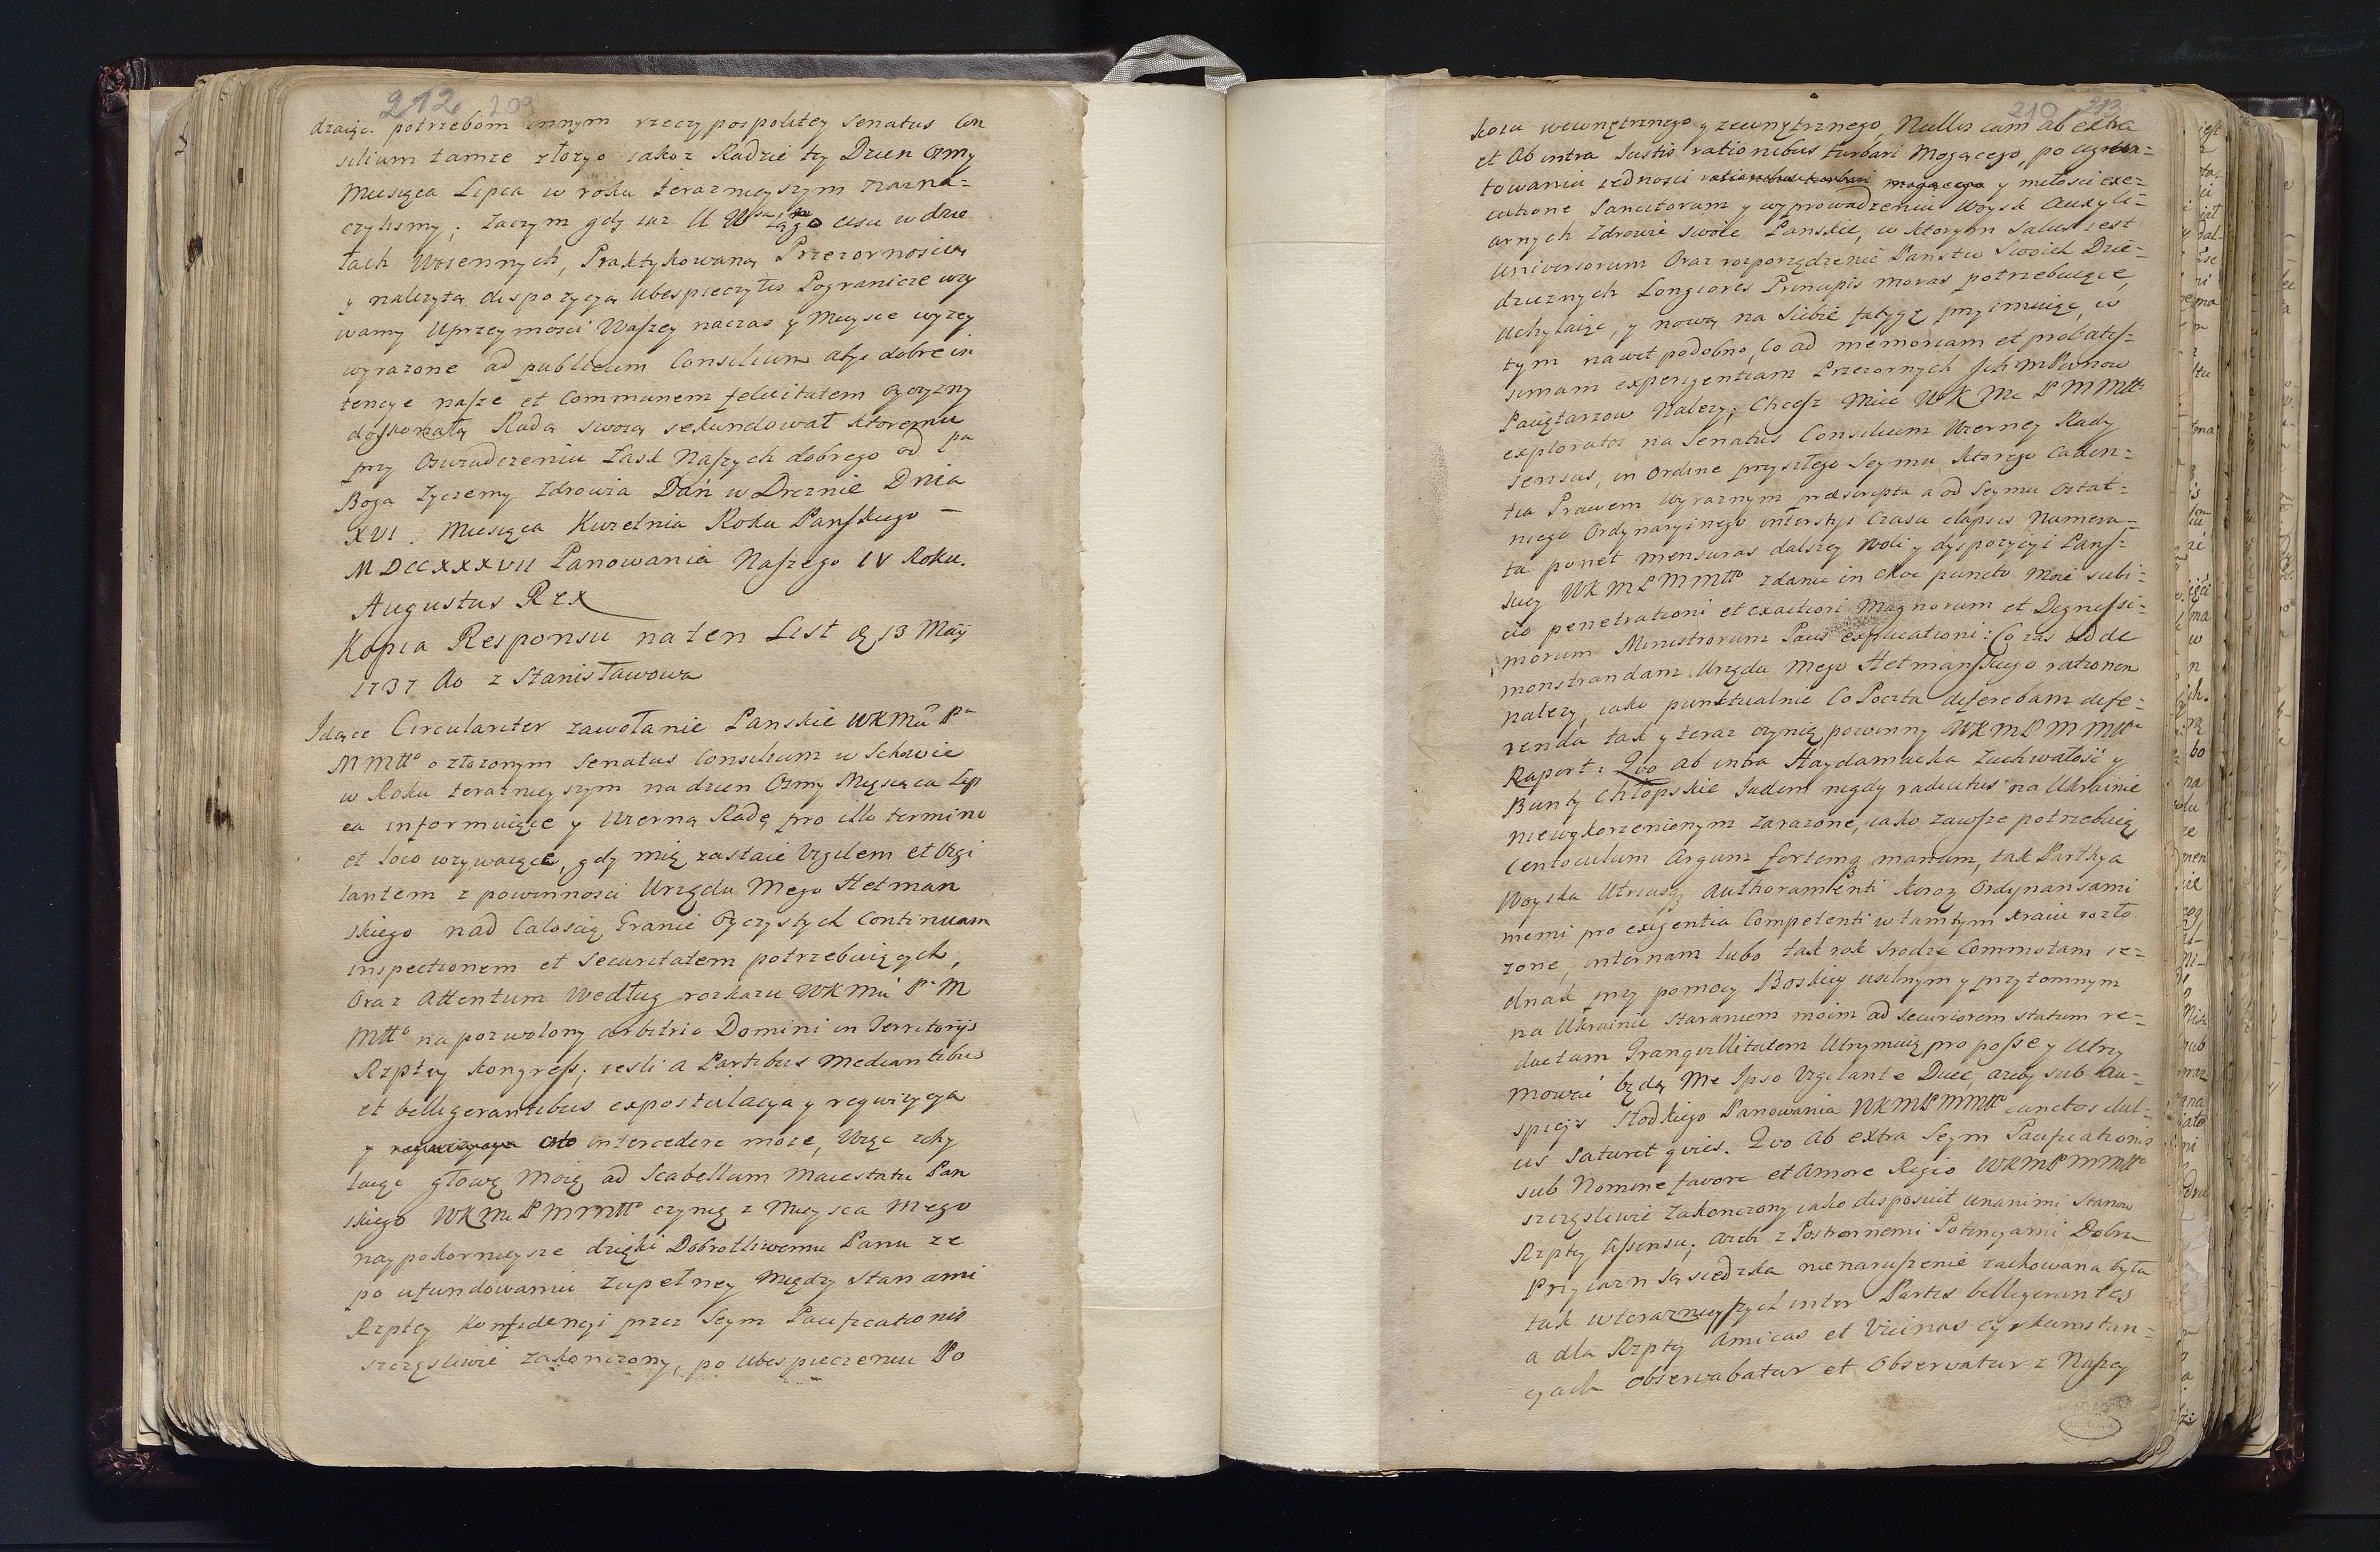 212 209
dzaiąc potrzebom innym rzeczypospolitey Senatus Con
silium tamze złozyc iakoz Radzie tey Dzien osmy
Miesiąca Lipca w roku teraznieyszym nazna=
czylismy; zaczym gdy iuz U W
łach Woiennych, Praktykowaną Przezornoscią
y nalezytą dispozycyą ubespieczyłes Pogranicze wzy
wamy Uprzeymosci Waszey naczas y Mieysce wyzey
wyrazone ad publicum Consilium abys dobre in
tencye nasze et Communem felicitatem oyczyzny
doskonałą Radą swoią sekundował ktoremu
przy Oswiadczeniu Łask Naszych dobrego od Pa
Boga zyczemy zdrowia Dan w Dreznie Dnia
XVI. Miesiąca Kwietnia Roku Panskiego –
MDCCXXXVII Panowania Naszego IV Roku.
Augustus Rex
Kopia Responsu na ten List 13 Maÿ
1737 Ao z Stanisławowa
Idące Circulariter zawołanie Panskie WKMci Pa
MMtto o złozonym Senatus Consilium w Schowie
w Roku teraznieyszym na dzien Osmy Miesiąca Lip
ca informuiące y Wierną Radę pro illo termino
et loco wzywaiące, gdy mię zastaie Vigilem et Vigi
lantem z powinnosci Urzędu Mego Hetman
skiego nad Całoscią Granic Oyczystych Continuam
inspectionem et Securitatem potrzebuiących,
Oraz Attentum Według rozkazu WKMci Pa M
Mtto na pozwolony arbitrio Domini in Territorijs
Rzptey Kongress; iesli a Partibus Mediantibus
et belligerantibus expostulacya y requizycya
y intercedere moze, Więc schy
laiąc głowę Moię ad Scabellum Maiestatu Pan
skiego WKMci P MMMtto czynię z Mieysca Mego
naypokornieysze dzięki Dobrotliwemu Panu ze
po ufundowaniu zupełney Między Stanami
Rzptey Konfidencyi przez Seym Pacificationis
szczęsliwie zakonczony, po ubespieczeniu Po
210 213
koiu wewnętrznego y zewnętrznego, Nullis cum ab extra
et Ab intra Iustis rationibus turbari Mogącego, po ugrun=
towaniu iednosci rationibus turbari mogącego y miłosci exe=
cutione Sancitorum y wyprowadzeniu Woysk Auxyli=
arnych Zdrowie swoie Panskie, w ktorym salus iest
Universorum Oraz rozporządzenie Panstw Swoich Dzie=
dzicznych Longiores Principis moras potrzebuiące,
Uchylaiąc, y nową na Siebie fatygę przyimuiąc, w
tym nawet podobno, co ad memoriam et probatis=
simam experyentiam Przezornych Ich MPanow
Pacyfarzow Nalezy; Chcesz Miec WKMc P MMtto
exploratos na Senatus Consilium Wierney Rady
sensus, in Ordine przyszłego Seymu ktorego caden=
tia Prawem wyraznym praescripta a od Seymu Ostat=
niego Ordynaryinego interstyi Czasu elapsis Numera=
ta ponet mensuras dalszey Woli y dyspozycyi Pans=
kiey WKMPMMtto zdanie in hoc puncto Moie subi=
cio penetrationi et exactiori Magnorum et Dignissi=
morum Ministrorum Pacis explicationi: Co zas ad de
monstrandam Urzędu Mego Hetmanskiego rationem
nalezy, iako punktualnie Co Poczta deferebam defe=
renda tak y teraz czynię powinny WKMPMMtto
Raport: Quo ab intra Haydamacka zuchwałość y
Bunty Chłopskie Iadem nigdy radicitus na Ukrainie
niewykorzenionym zarazone, iako zawsze potrzebuią
Centoculum Argum fortemq manum, tak Parthya
Woyska Utriusq Authoramenti Ordynansami
memi pro exigentia Competenti w tamtym kraiu rozło
zone, internam lubo tak rok srodze Commotam ie=
dnak przy pomocy Boskiey usilnym y przytomnym
na Ukrainie staraniem moim ad securiorem statum re=
ductam Tranquillitatem Utrymuią pro posse y Utrzy
mowac będą Me Ipso Vigilante Duce, azeby sub Au=
spicijs słodkiego Panowania WKMPMMtto cunctos dul=
cis saturet quies. Quo Ab extra Seym Pacificationis
sub Nomine favore et Amore Regio WKMPMMMtto
szczęsliwie zakonczony iako disposuit unanimi Stanow
Rzptey Assensu; azeby z Postronnemi Potencyami Dobra
Przyiazn Sąsiedzka nienaruszenie zachowana była
tak w teraznieyszych inter Partes belligerantes
a dla Rzptey Amicas et Vicinas cyrkumstan=
cyach observabatur et Observatur z Naszey